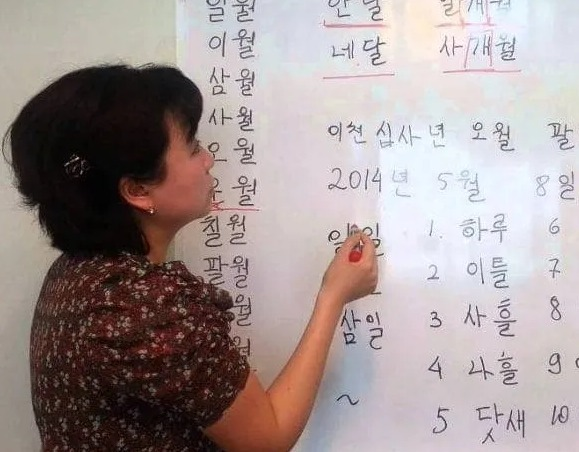 일월
이월
삼월
사월
오월
월
칠월
팔월
월
월
한달 일개월
네달 사개월
이천 십사 년 오월 팔
2014년 5월 8일
일일 1. 하루 6
2 이틀 7
삼일 3 사흘 8
4 나흘 9
~ 5 닷새 10